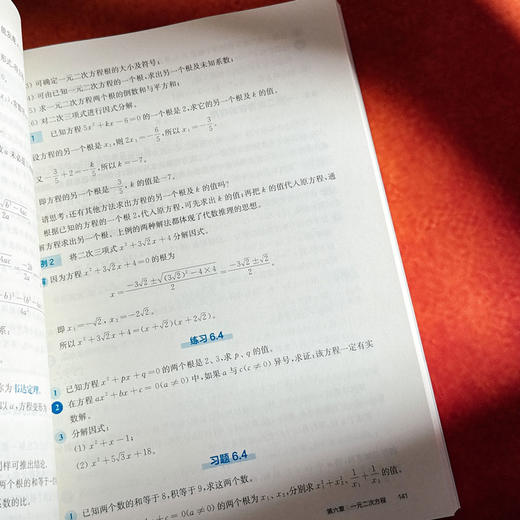 3) 可确定一元二次方程根的大小及符号;
4) 可由已知一元二次方程的一个根,求出另一个根及未知系数;
5) 求一元二次方程两个根的倒数和与平方和;
6) 对二次三项式进行因式分解.
1 已知方程 5x²+kx-6=0 的一个根是 2,求它的另一个根及 k 的值.
设方程的另一个根是 x₁,则 2x₁=-6/5,所以 x₁=-3/5.
又 -3/5+2=-k/5,所以 k=-7.
即方程的另一个根是 -3/5,k 的值是-7.
请思考:还有其他方法求出方程的另一个根及 k 的值吗?
根据已知的方程的一个根 2,代入原方程,可先求出 k 的值;再把 k 的值代入原方程,通
解方程求出另一个根. 上例的两种解法都体现了代数推理的思想.
例 2 将二次三项式 x²+3√2x+4 分解因式.
因为方程 x²+3√2x+4=0 的根为
x=(-3√2±√((3√2)²-4×4))/2=(-3√2±√2)/2
即 x₁=-√2, x₂=-2√2.
所以 x²+3√2x+4=(x+√2)(x+2√2).
练习 6.4
1 已知方程 x²+px+q=0 的两个根是 2、3,求 p、q 的值.
2 在方程 ax²+bx+c=0(a≠0) 中,如果 a 与 c(c≠0) 异号,求证:该方程一定有实
数解.
3 分解因式:
(1) x²+x-1;
(2) x²+5√3x+18.
习题 6.4
1 已知两个数的和等于 8,积等于 9,求这两个数.
=0(a≠0) 的两个根为 x₁、x₂,分别求 x₁²+x₂²、1/x₁+1/x₂ 的值.
第六章 一元二次方程 141
称为韦达定理.
以 a,方程变形为
同样可推出结论.
个根的和等于-
系数的比.